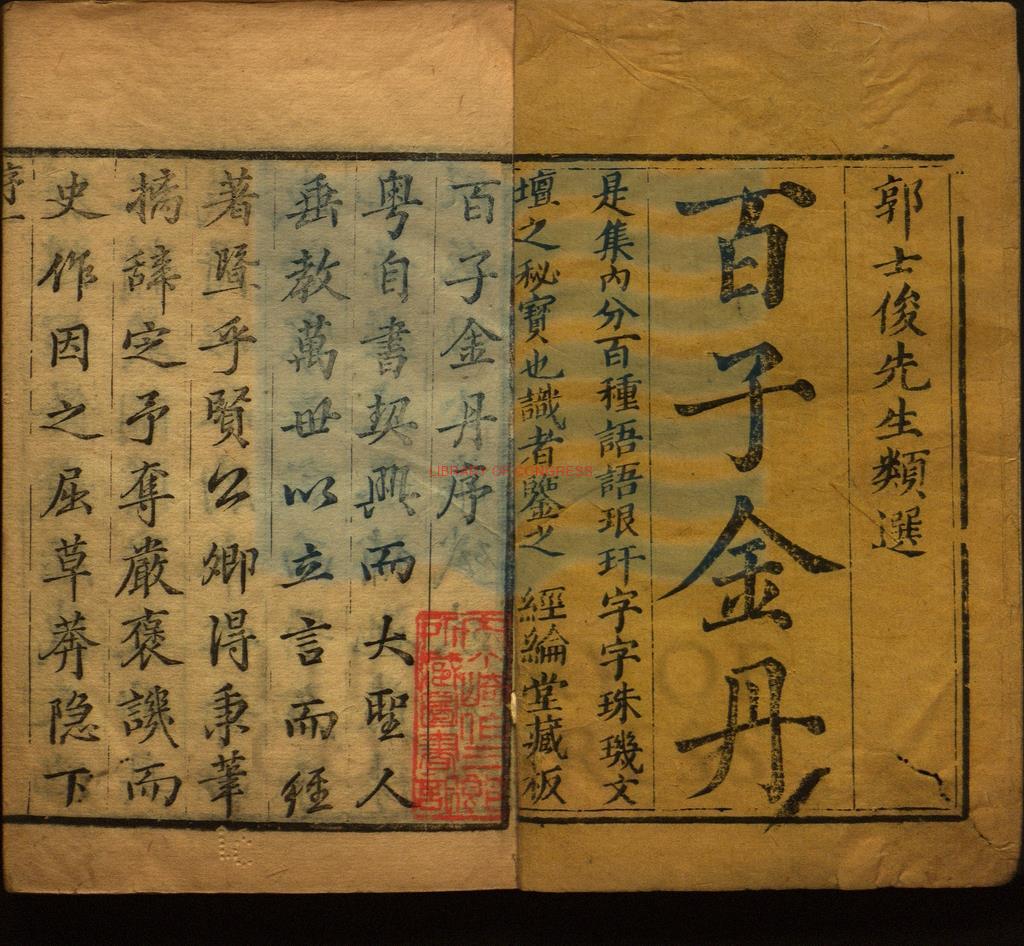 郭士俊先生類選
百子金丹
是集內分百種語語琅玕字字珠璣文
壇之秘寶也識者鑒之 經綸堂藏板
百子金丹序
粵自書契興而大聖人
垂教萬世以立言而經
著曁乎賢公卿得秉筆
摛辭定予奪嚴褒譏而
史作因之屈草莽隐下
序一
LIBRARY OF CONGRESS